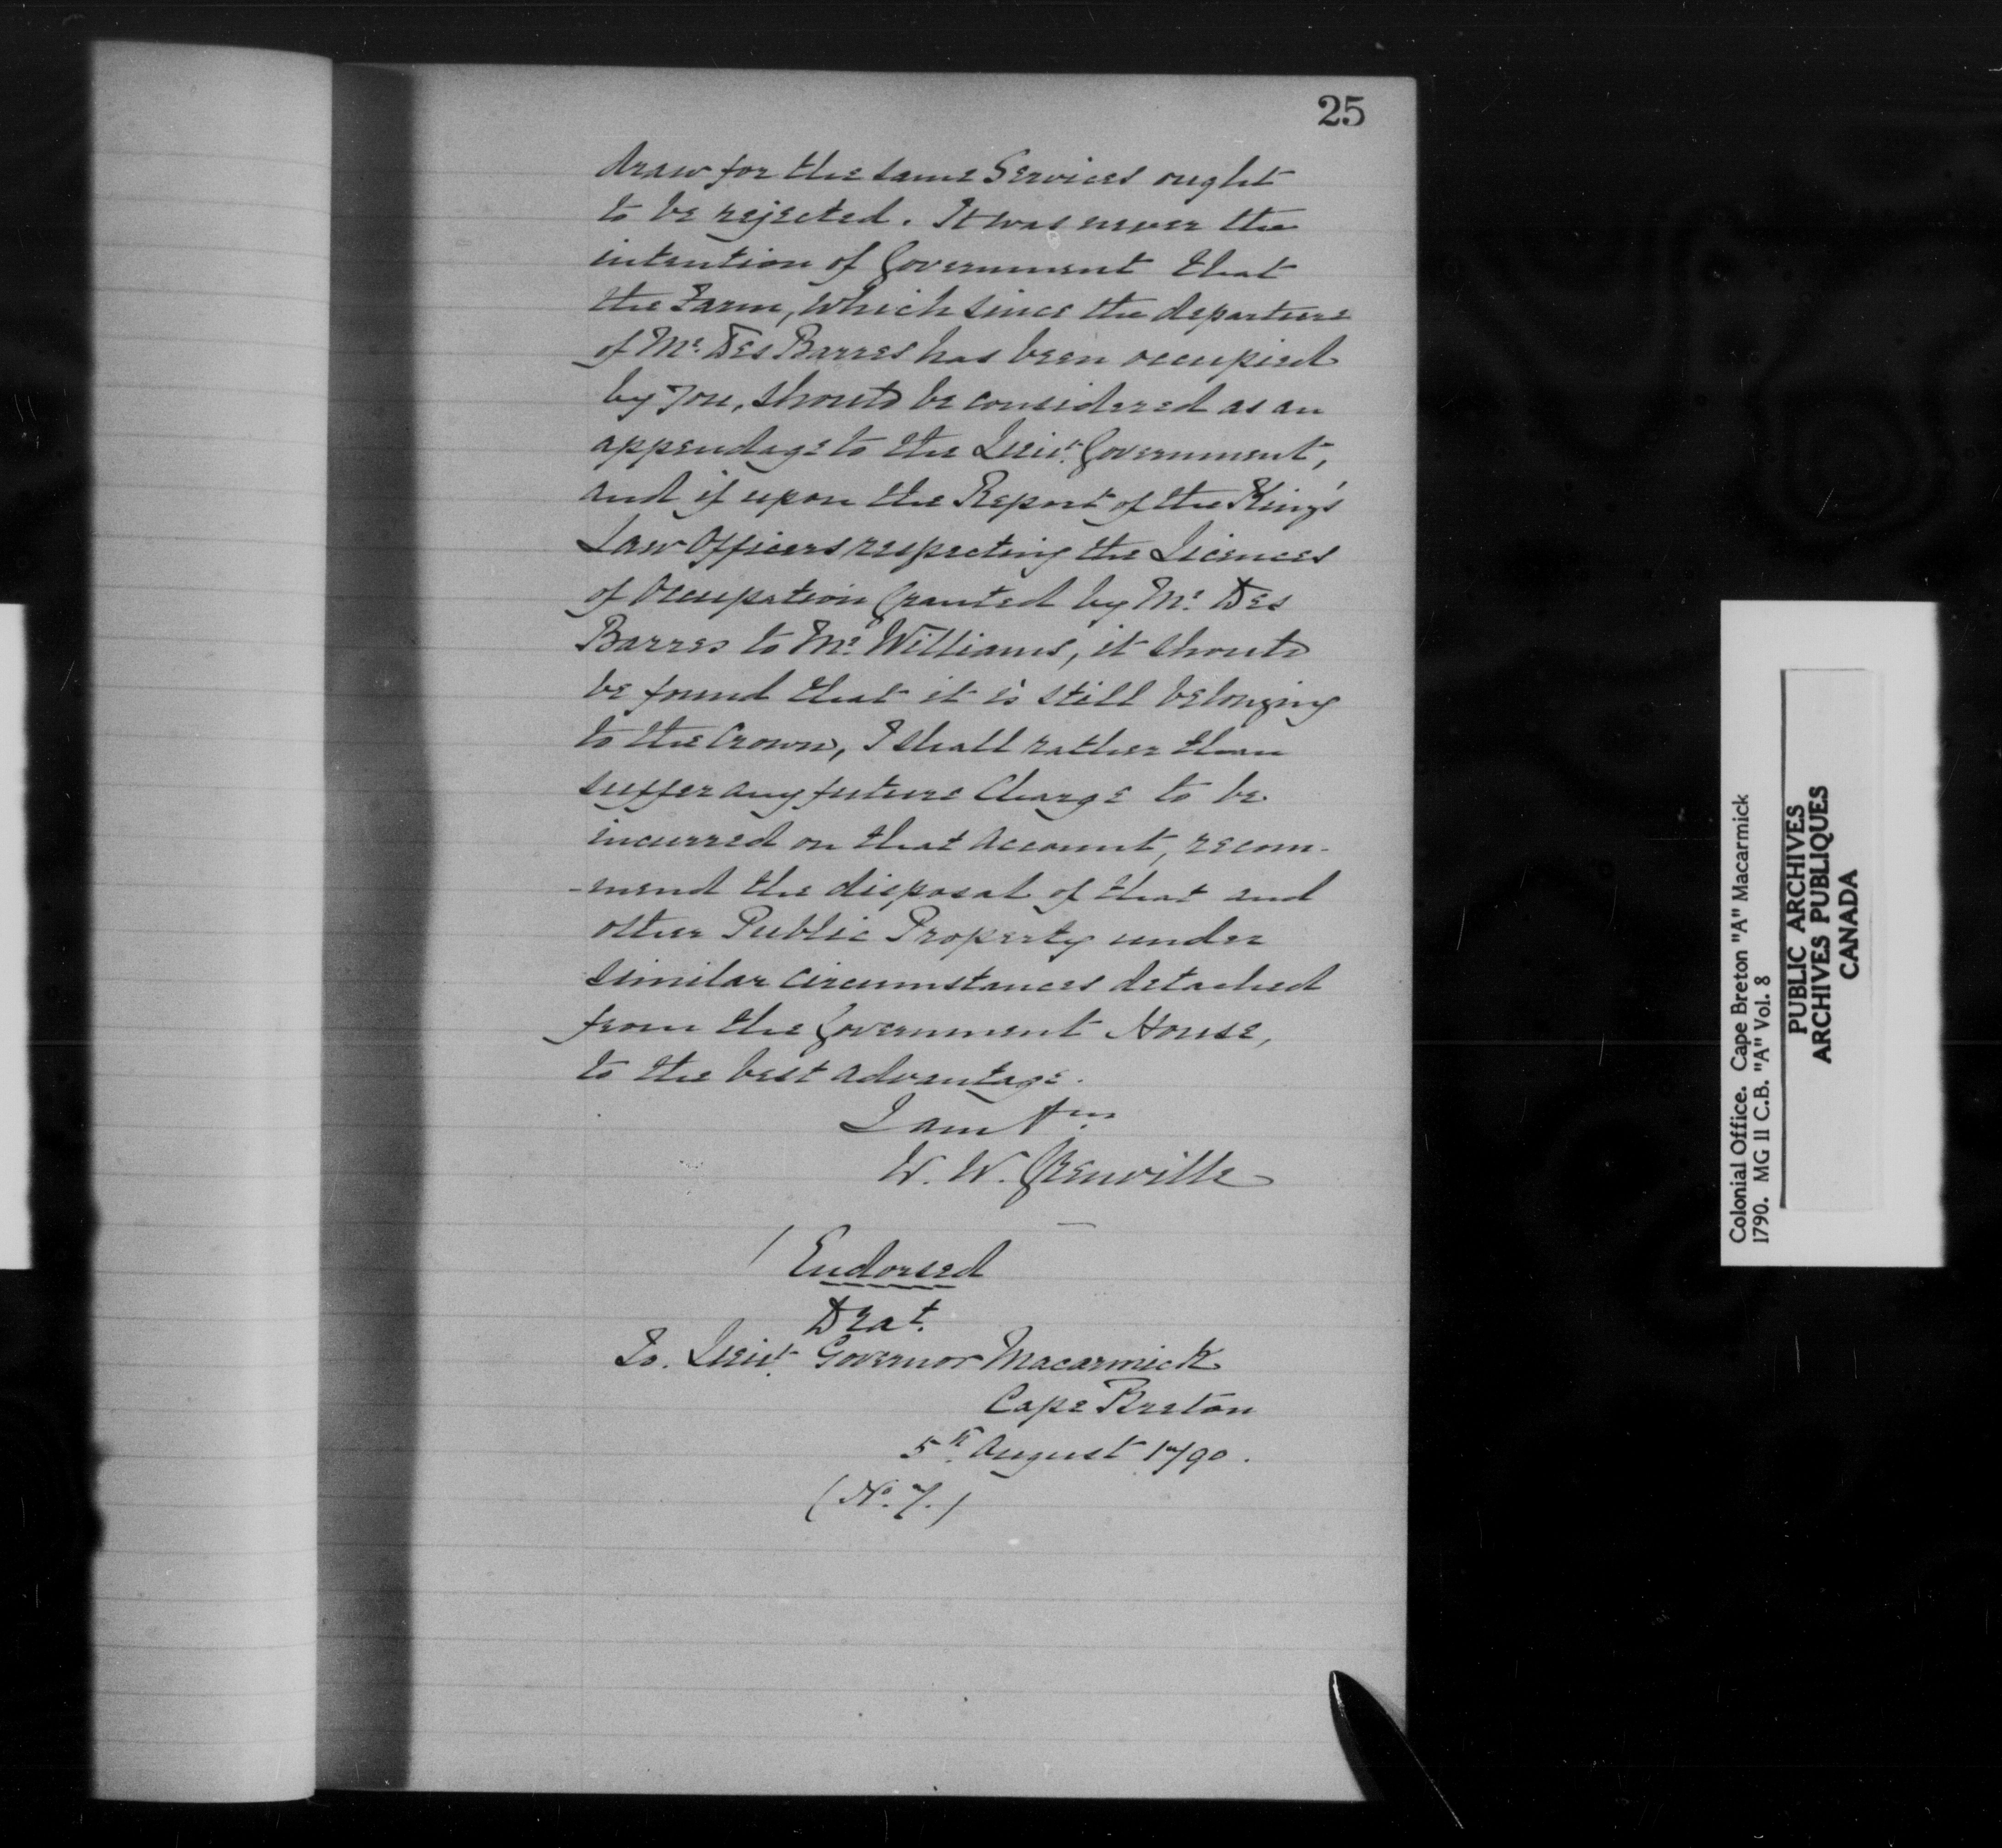 25
draw for the same Services ought
to be rejected. It was never the
intention of Government that
the Farm, which since the departure
of Mr. Des Barres has been occupied
by you, should be considered as an
appendage to the Lieut. Government,
and if upon the Report of the King's
Law Officers respecting the Licences
of Occupation Granted by Mr. Des
Barres to Mr. Williams, it should
be found that it is still belonging
to the Crown, I shall rather than
suffer any future Charge to be
incurred on that Account, recom-
-mend the disposal of that and
other Public Property under
similar circumstances detached
from the Government House,
to the best advantage.
I am
W. W. Grenville
Endorsed
Drat.
To. Lieut. Governor Macarmick
Cape Breton
5th. August 1790.
(No. 7.)
Colonial Office. Cape Breton "A" Macarmick
1790. MG 11 C.B. "A" Vol. 8
PUBLIC ARCHIVES
ARCHIVES PUBLIQUES
CANADA